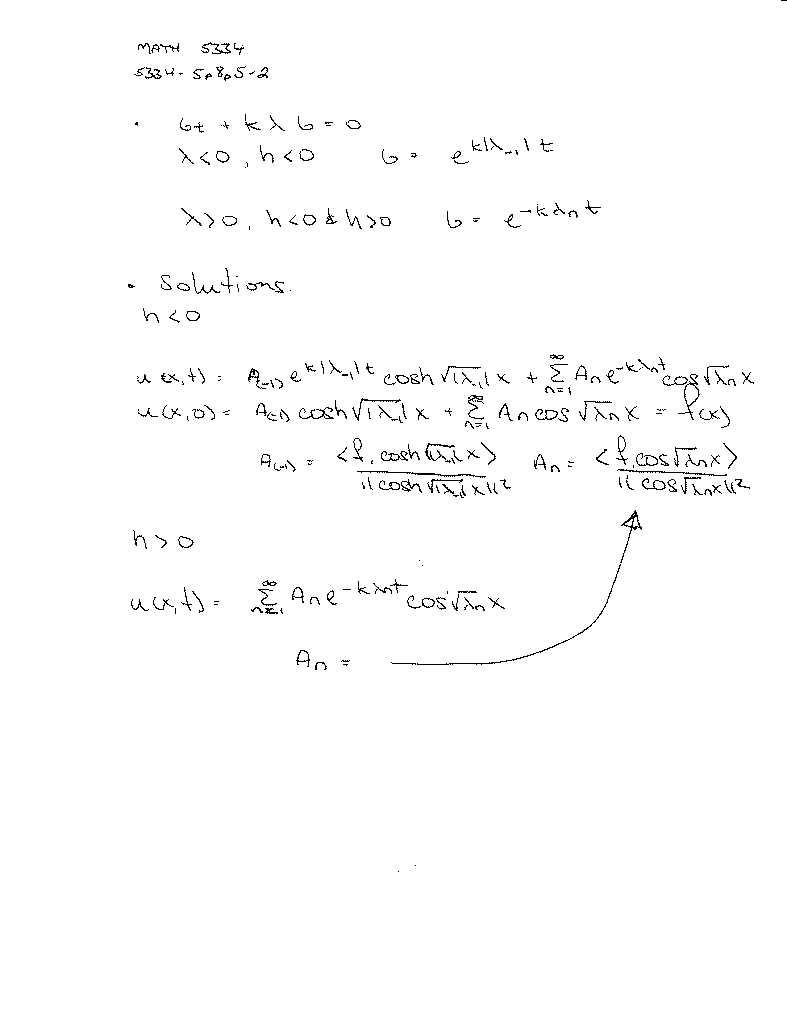 MATH 5334
5334-5p8p5-2
· G_t + kλG = 0
λ<0, h<0 G = e^{k|λ_{-1}|t}
λ>0, h<0 & h>0 G = e^{-kλ_n t}
· Solutions.
h<0
u(x,t) = A_{(-1)} e^{k|λ_{-1}|t} cosh √|λ_{-1}| x + Σ_{n=1}^∞ A_n e^{-kλ_n t} cos √λ_n x
u(x,0) = A_{(-1)} cosh √|λ_{-1}| x + Σ_{n=1}^∞ A_n cos √λ_n x = f(x)
A_{(-1)} = <f, cosh √|λ_{-1}| x> / ||cosh √|λ_{-1}| x||² A_n = <f, cos √λ_n x> / ||cos √λ_n x||²
h>0
u(x,t) = Σ_{n=1}^∞ A_n e^{-kλ_n t} cos √λ_n x
A_n =